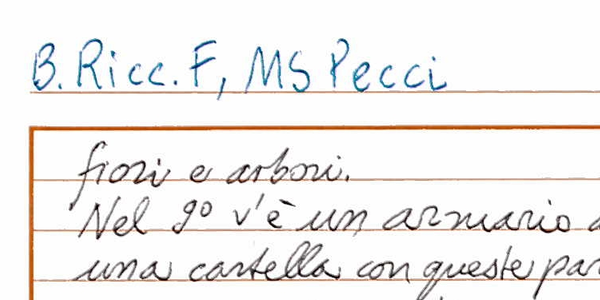 B. Ricc. F, MS Pecci
fiori e arbori.
Nel 9º v'è un armario
una cartella con queste par